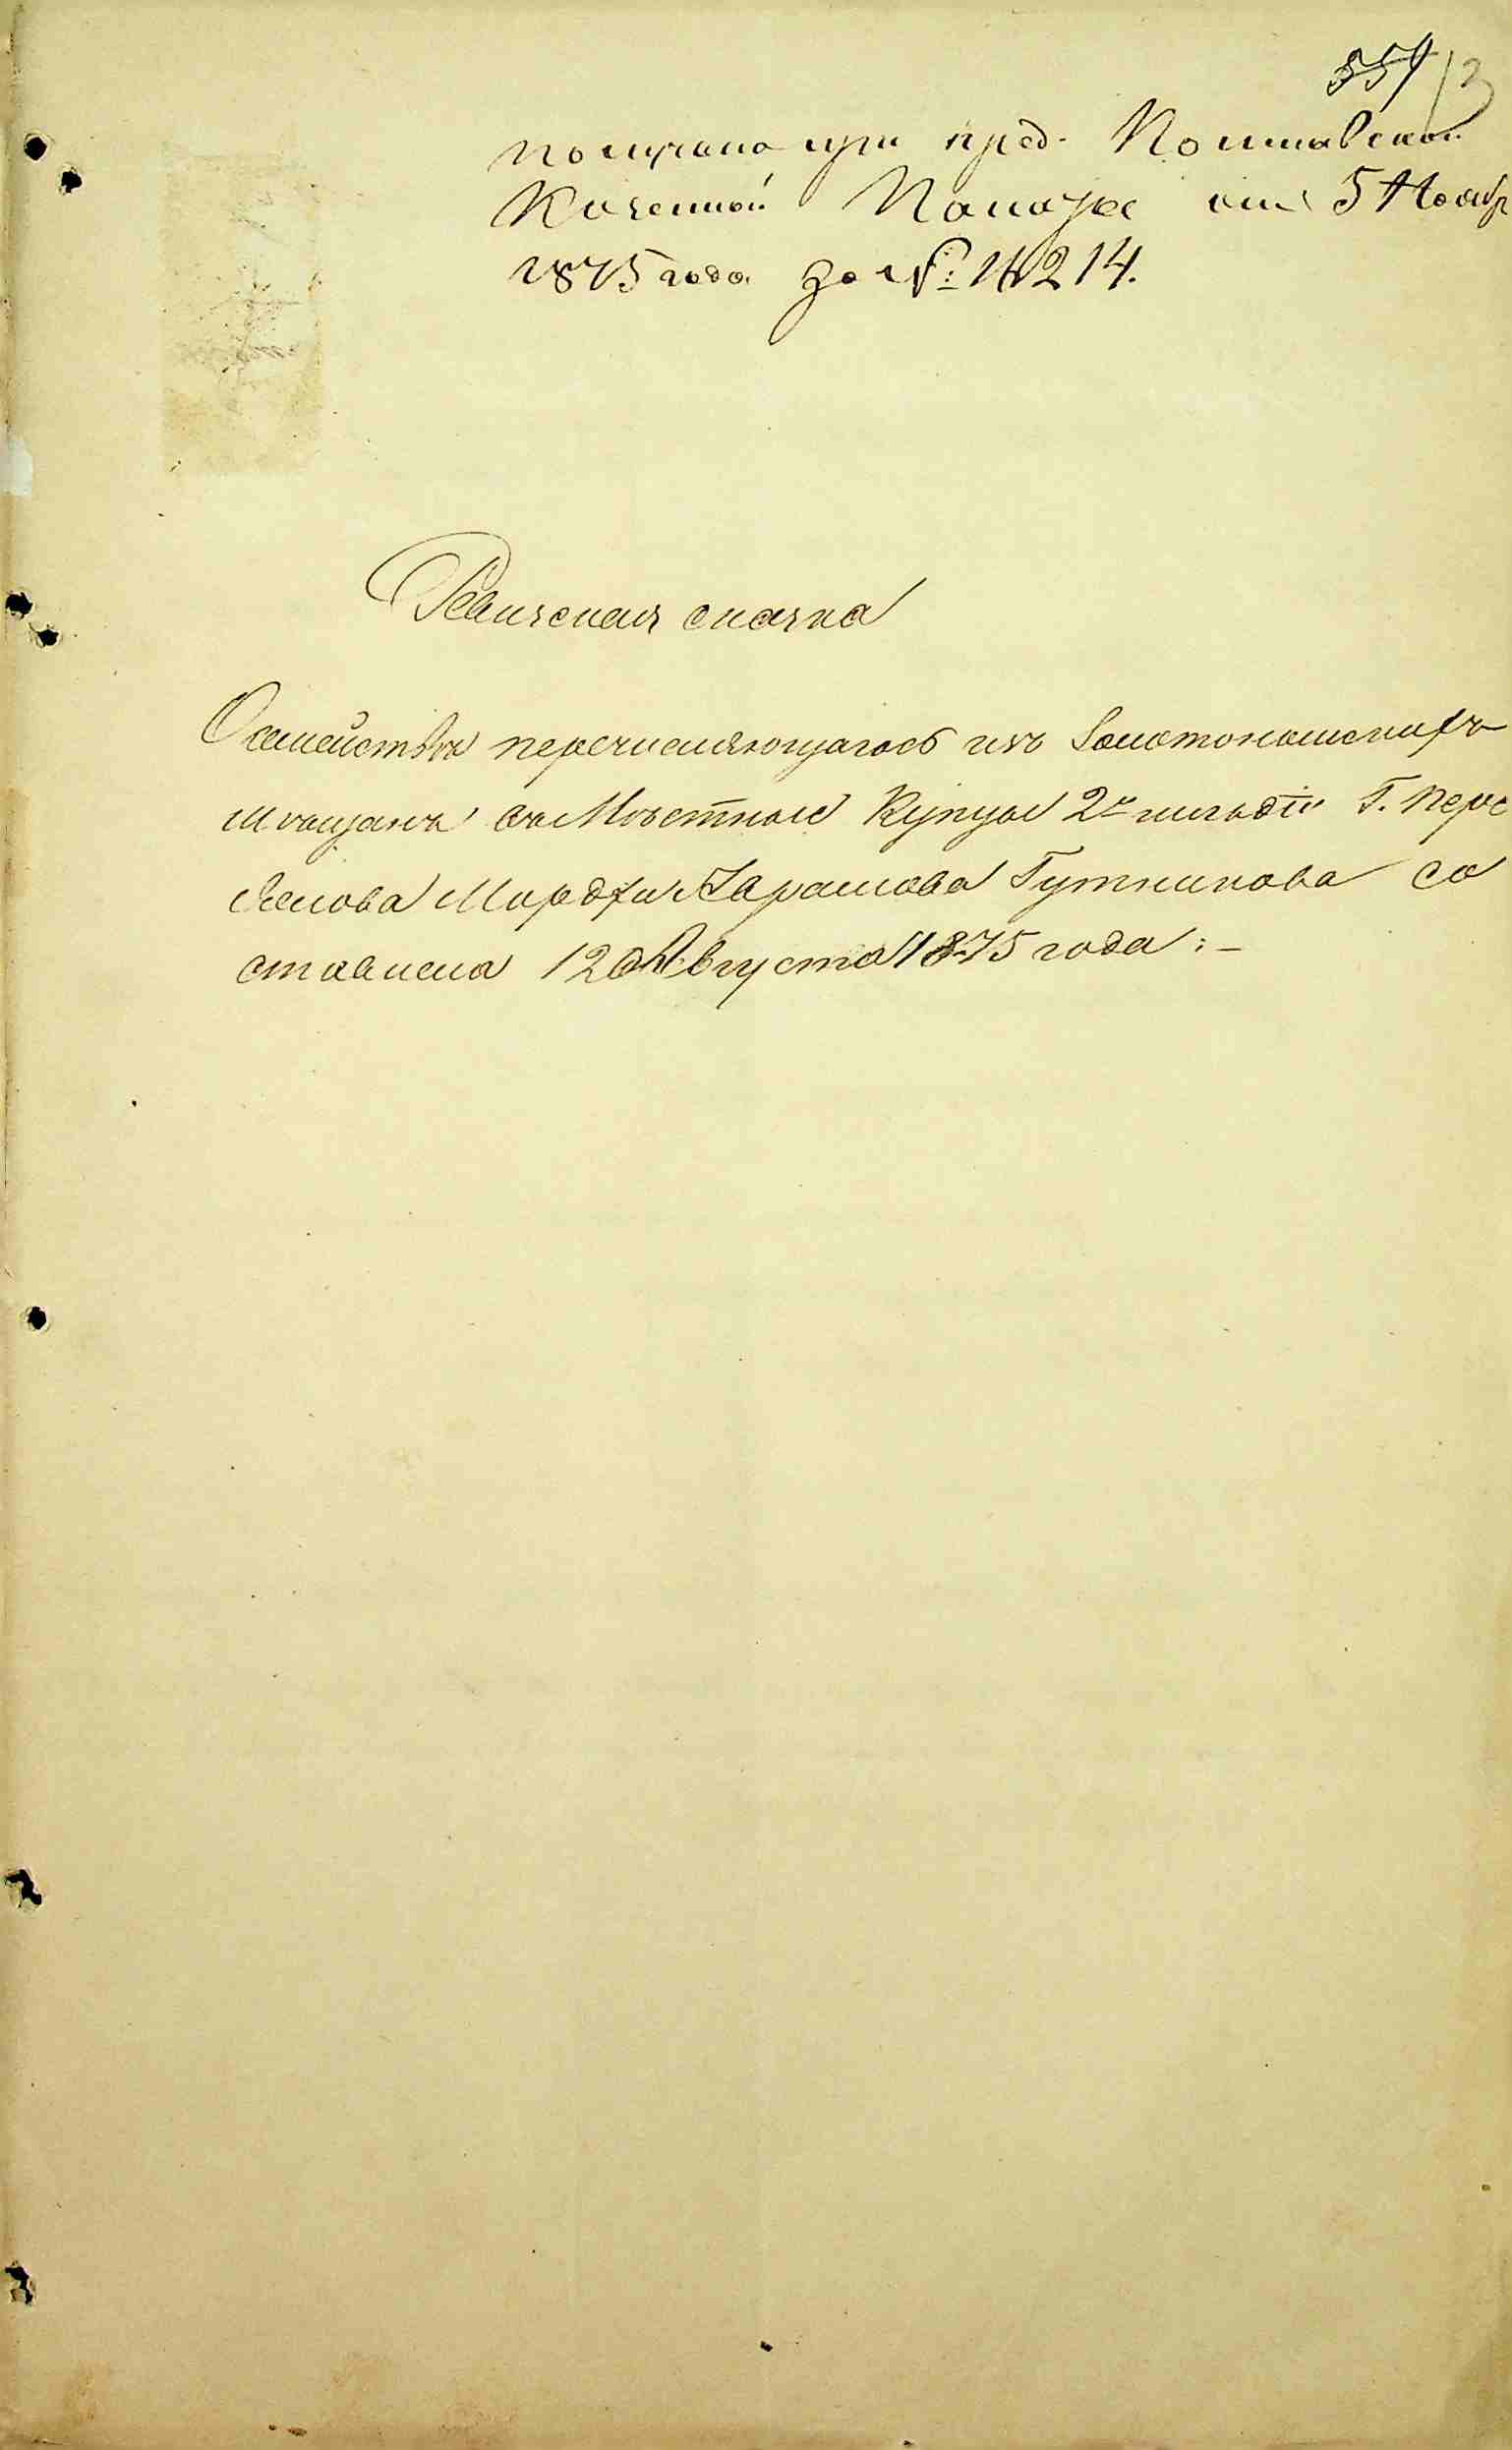 554 13
получена при пред. Полтавской
Казенной Палаты от 5 Ноябр
1875 года за №: 14214.
Ревизская сказка
О семействѣ перечисляющагося изъ Золотоношскихъ
мѣщанъ въ Мѣстные Купцы 2й гильдіи Г. Пере
яслова Мордхи Абрамова Гутникова со
ставлена 12 Августа 1875 года :-